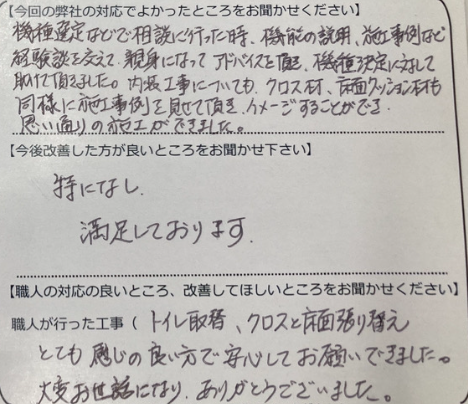 【今回の弊社の対応でよかったところをお聞かせください】
機種選定などで相談に行った時、機能の説明、施工事例など
経験談を交えて、親身になってアドバイスを頂き、機種決定に対して
助けて頂きました。内装工事についても、クロス材、床面クッション材も
同様に施工事例を見せて頂き、イメージすることができ、
思い通りの施工ができました。
【今後改善した方が良いところをお聞かせ下さい】
特になし、
満足しております。
【職人の対応の良いところ、改善してほしいところをお聞かせください】
職人が行った工事（ トイレ取替、クロスと床面張り替え
とても感じの良い方で安心してお願いできました。
大変お世話になり、ありがとうございました。